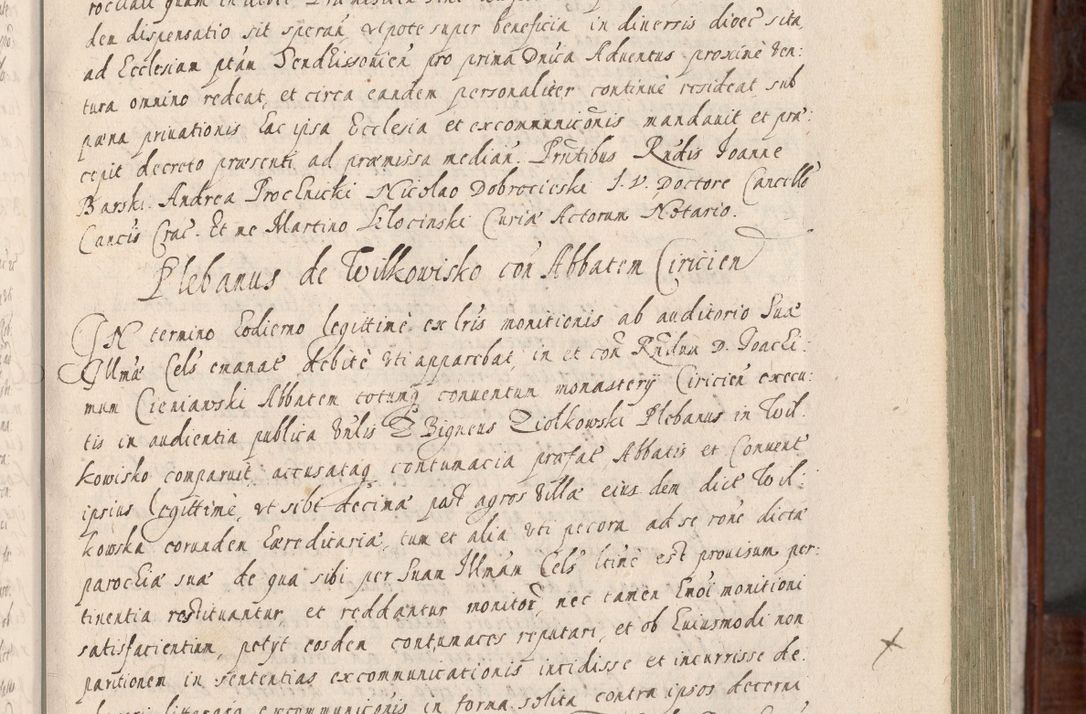 den dispensatio sit speran̄ utpote super beneficia in diversis dioec̄ sita
ad Ecclesiam ptān Pendēissonien̄ pro prima Dnica Adventus proxime ven:
tura omnino redeat, et circa eandem personaliter continuè resideat sub
pœna privationis hac ipsa Ecclesia et excommunicōnis mandavit et præ:
cepit decreto præsenti ad præmissa median̄. Prn̄tibus Rndis Joanne
Barski. Andrea Prochnicki Nicolao Dobrocieski I. V. Doctore Cancello
Cancis Crac̄. Et me Martino Klocinski Curiæ Actorum Notario.
Plebanus de Wilkowisko con̄ Abbatem Ciricien
IN termino hodierno legittimè ex lr̄is monitionis ab auditorio Suæ
Illmæ Cels emanat̄ debitè uti apparebat, in et con̄ Rn̄dum D. Joachi:
mum Cieniawski Abbatem totumq conventum monastery Ciricien̄ execu:
tis in audientia publica Vn̄lis Zbigneus Ziolkowski Plebanus in Wil:
kowisko comparuit, accusataq contumacia præfat̄ Abbatis et Convent̄
ipsius legittimè, ut sibi decimæ post agros villæ eius dem dict̄ Wil:
kowska eorundem hæreditariæ, tum et alia uti pecora ad se rōne dictæ
parochiæ suæ de qua sibi per Suam Illmān Cels ltinē est provisum per:
tinentia restituantur, et reddantur monitor̄, nec tamen hm̄oi monitioni
satisfacientium, petyt eosdem contumaces reputari, et ob huiusmodi non
paritionem in sententias excommunicationis incidisse et incurrisse de:
litteras excommunicōnis in forma solita contra ipsos decerni